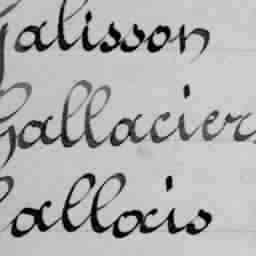 Galisson
Gallacier
Gallois